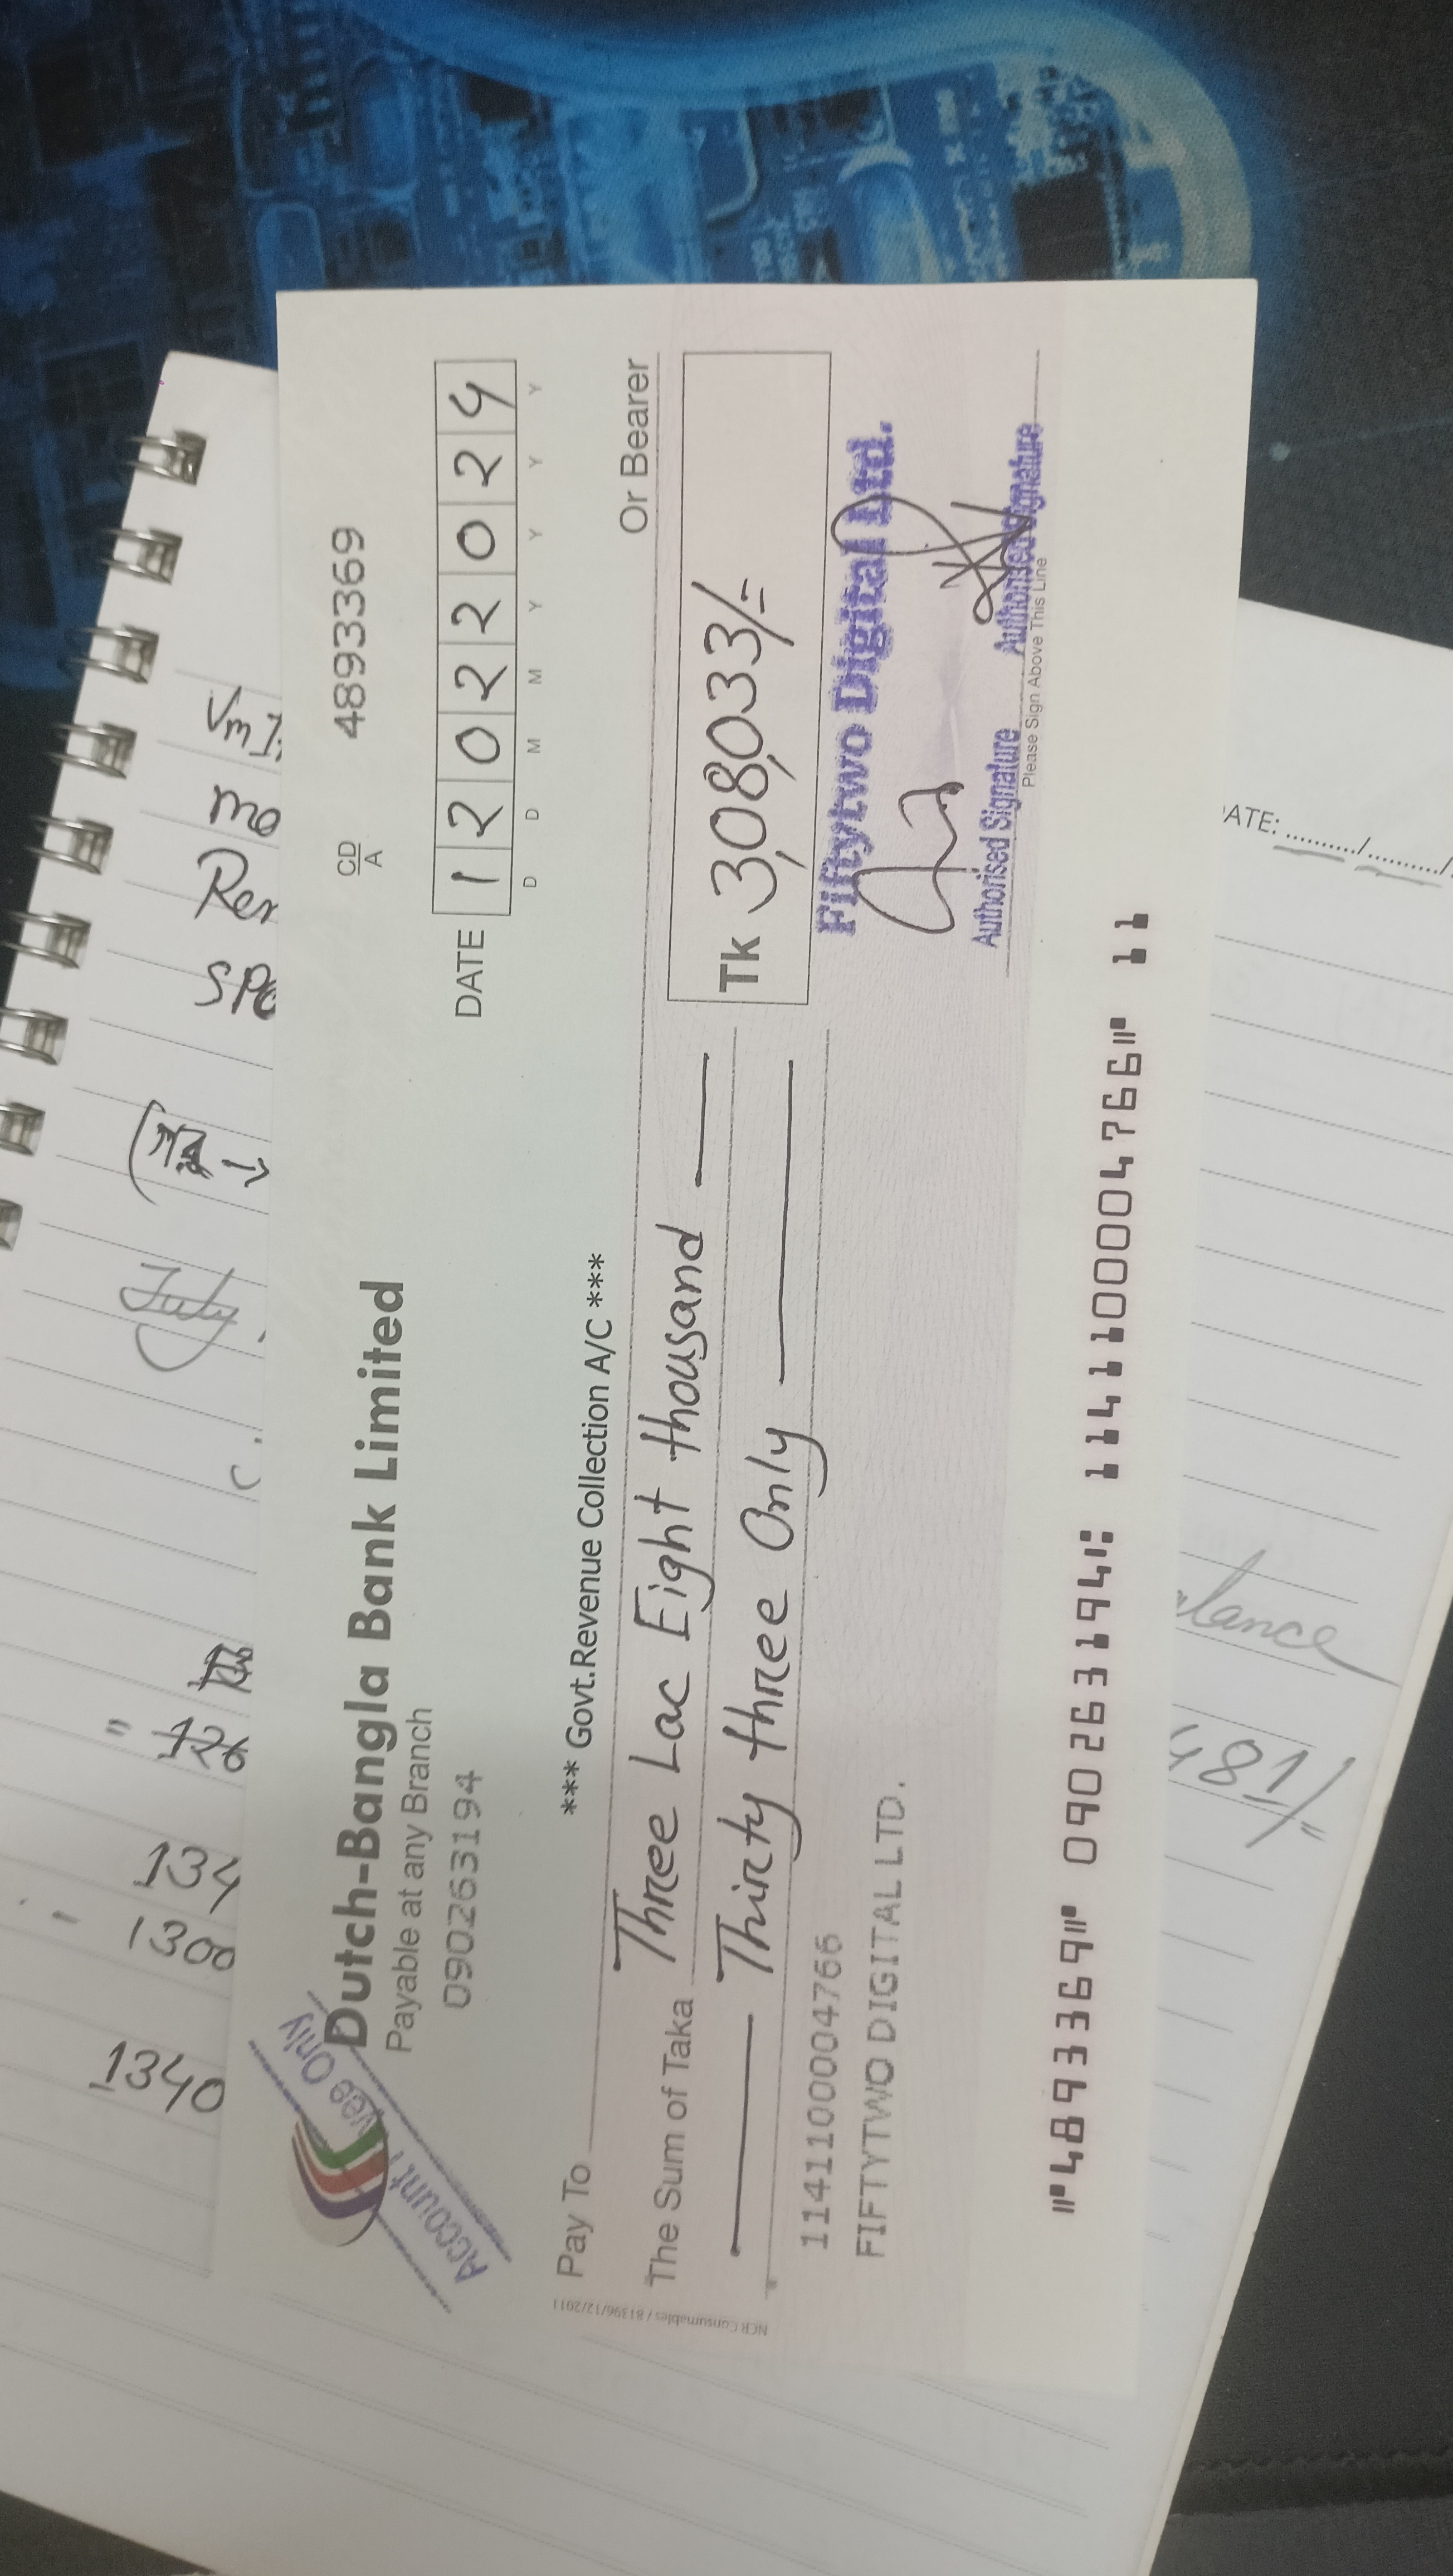 Dutch-Bangla Bank Limited
Payable at any Branch
090263194
CD
A
4893369
DATE 12022024
D D M M Y Y Y Y
Account Only
Pay To *** Govt.Revenue Collection A/C *** Or Bearer
The Sum of Taka Three Lac Eight thousand
Thirty three Only
Tk 3,08,033/=
1141100004766
FIFTYTWO DIGITAL LTD.
Fiftytwo Digital Ltd.
Authorised Signature Authorised Signature
Please Sign Above This Line
NCR Consumables / 81396/12/2011
⑈4893369⑈ 090263194⑆ 1141100004766⑈ 11
July
126
134
1300
1340
ATE: ........../........../
481/=